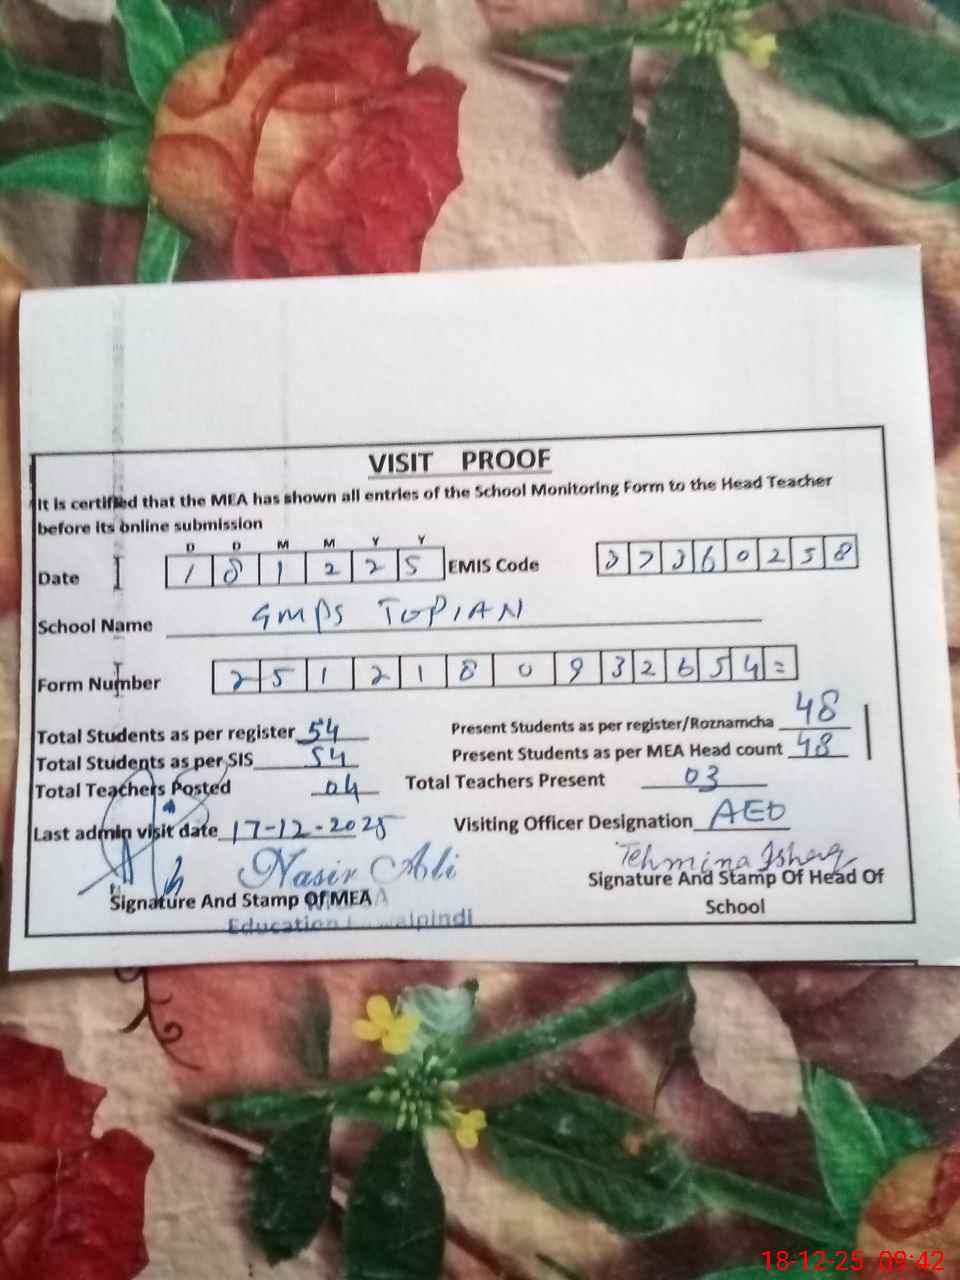 VISIT PROOF
It is certified that the MEA has shown all entries of the School Monitoring Form to the Head Teacher
before its online submission
D D M M Y Y
Date 1 8 1 2 2 5 EMIS Code 3 7 3 6 0 2 5 8
School Name GMPS TOPIAN
Form Number 2 5 1 2 1 8 0 9 3 2 6 5 4 =
Total Students as per register 54 Present Students as per register/Roznamcha 48
Total Students as per SIS 54 Present Students as per MEA Head count 48
Total Teachers Posted 04 Total Teachers Present 03
Last admin visit date 17-12-2025 Visiting Officer Designation AEO
Nasir Ali Tehmina Ishaq
Signature And Stamp Of MEA Signature And Stamp Of Head Of
School
Education
18-12-25 09:42